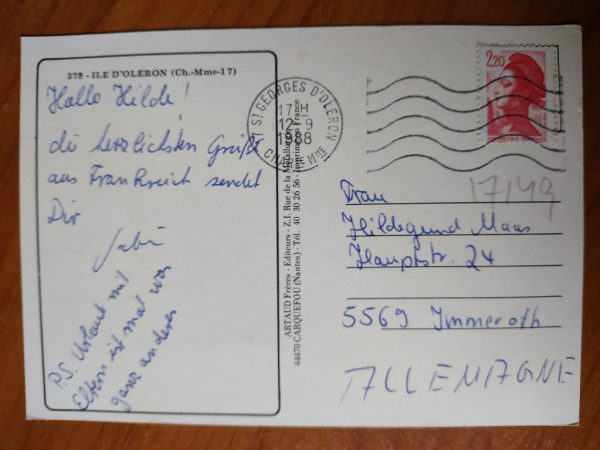 378 - ILE D'OLERON (Ch.-Mme-17)
Hallo Hilde!
die herzlichsten Grüße
aus Frankreich sendet
Dir
Sabi
P.S. Urlaub mit
Eltern ist mal was
ganz anderes
ARTAUD Frères - Editeurs - Z.I. Rue de la Métallurgie
44470 CARQUEFOU (Nantes) - Tél. 40 30 26 56 - Imprimé en France
17 ST GEORGES D'OLERON
17 H
12-9
1988
CHARTE MME
2,20
17/49
Frau
Hildegund Maas
Hauptstr. 24
5569 Immeroth
ALLEMAGNE